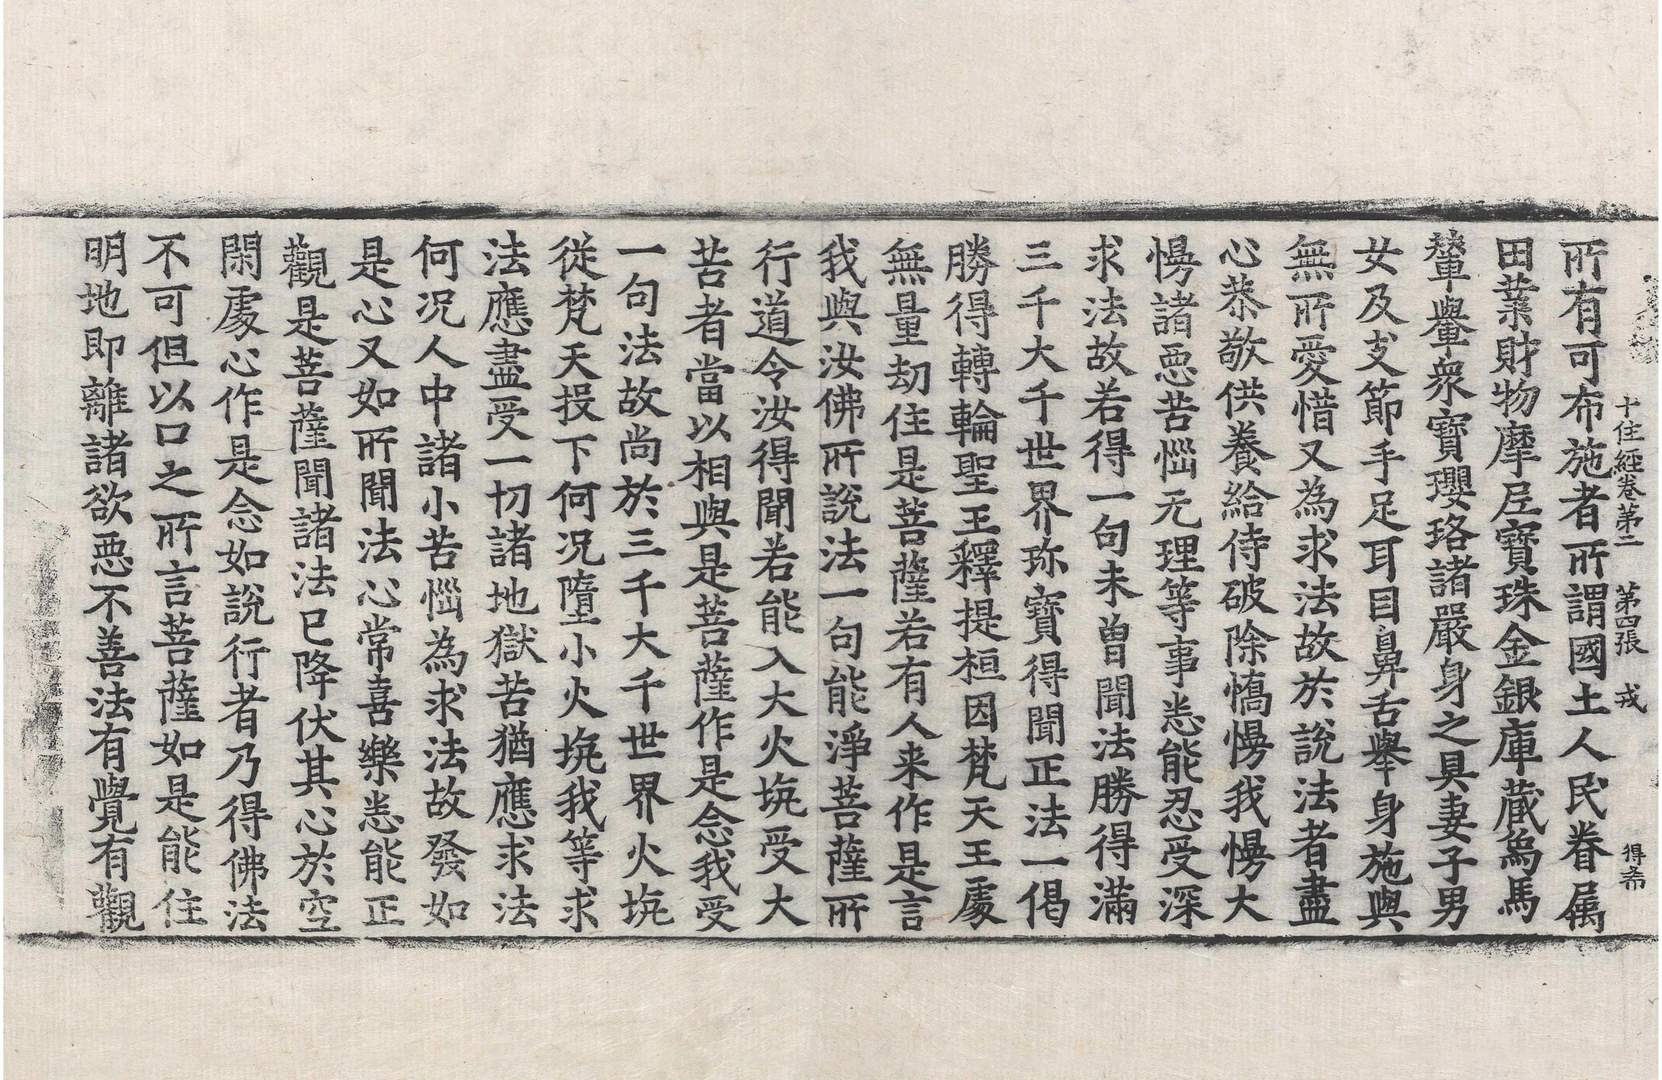 十住経卷第二　第四張　戎　得希
所有可布施者所謂國土人民眷属
田業財物摩尼寶珠金銀庫蔵烏馬
輦轝衆寶瓔珞諸嚴身之具妻子男
女及支節手足耳目鼻舌舉身施與
無所愛惜又為求法故於說法者盡
心恭敬供養給侍破除憍慢我慢大
慢諸惡苦惱无理等事悉能忍受深
求法故若得一句未曾聞法勝得滿
三千大千世界珎寶得聞正法一偈
勝得轉輪聖王釋提桓因梵天王處
無量劫住是菩薩若有人来作是言
我與汝佛所說法一句能淨菩薩所
行道令汝得聞若能入大火坑受大
苦者當以相與是菩薩作是念我受
一句法故尚於三千大千世界火坑
從梵天投下何况墮小火坑我等求
法應盡受一切諸地獄苦猶應求法
何况人中諸小苦惱為求法故發如
是心又如所聞法心常喜樂悉能正
觀是菩薩聞諸法已降伏其心於空
閑處心作是念如說行者乃得佛法
不可但以口之所言菩薩如是能住
明地即離諸欲惡不善法有覺有觀